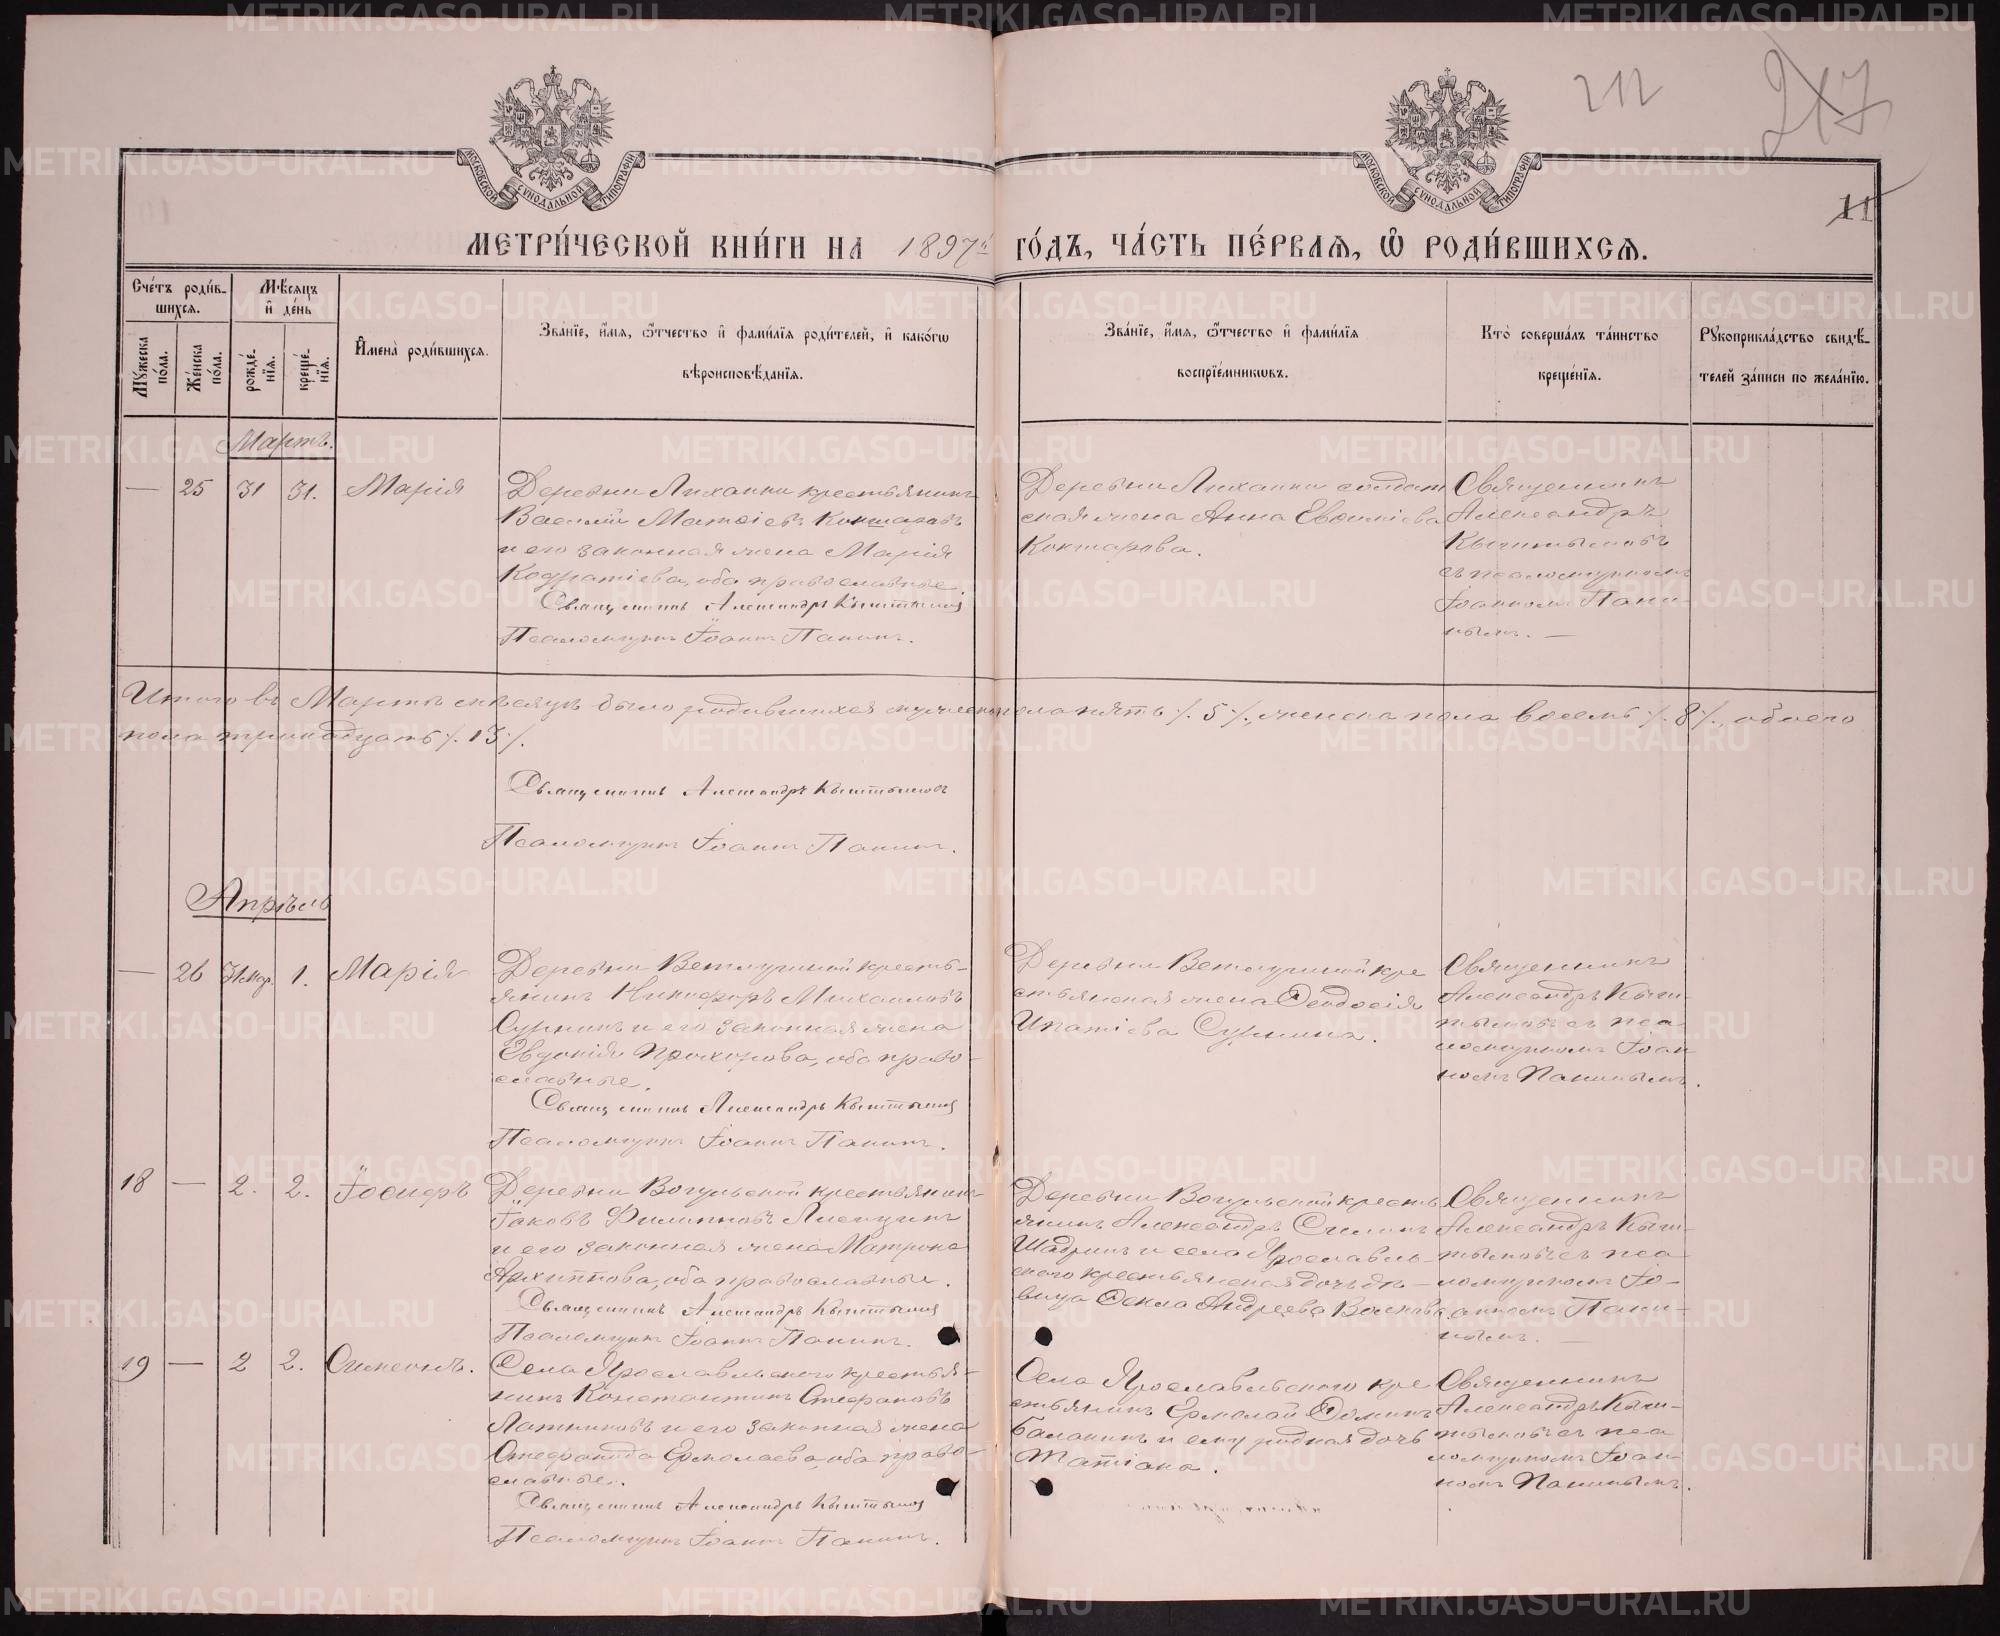 212
217
11
МОСКОВСКОЙ СѴНОДАЛЬНОЙ ТИПОГРАФІИ
МОСКОВСКОЙ СѴНОДАЛЬНОЙ ТИПОГРАФІИ
МЕТРИ́ЧЕСКОЙ КНИ́ГИ НА 1897й ГО́ДЪ, ЧА́СТЬ ПЕ́РВАЯ, Ѡ҆ РОДИ́ВШИХСЯ.
Сче́тъ роди́в-
шихся.
Мѣсяцъ
и҆ де́нь
Мꙋ́жеска по́ла.
Же́нска по́ла.
рожде́-
нїя.
креще́-
нїя.
И҆мена̀ роди́вшихся.
Зва́нїе, и҆́мя, ѻ҆́тчество и҆ фами́лїя роди́телей, и҆ како́гѡ
вѣроисповѣ́данїя.
Зва́нїе, и҆́мя, ѻ҆́тчество и҆ фами́лїя
воспрїе́мникѡвъ.
Кто̀ соверша́лъ та́инство
креще́нїя.
Рꙋкоприкла́дство свидѣ́-
телей за́писи по жела́нїю.
Мартъ.
— 25 31 31. Марія
Деревни Лиханки крестьянинъ
Василій Матѳіевъ Кокшаровъ
и его законная жена Марія
Кодратіева, оба православные.
Священникъ Александръ Кыштымовъ
Псаломщикъ Іоаннъ Панинъ.
Деревни Лиханки солдат
ская жена Анна Евѳиміева
Кокшарова.
Священникъ
Александръ
Кыштымовъ
съ псаломщикомъ
Іоанномъ Пани-
нымъ. —
Итого въ Мартѣ мѣсяцѣ было родившихся мужеска пола пять ./. 5 ./., женска пола восемь ./. 8 ./., обоего
пола тринадцать ./. 13 ./.
Священникъ Александръ Кыштымовъ
Псаломщикъ Іоаннъ Панинъ.
Апрѣль
— 26 31 мар. 1. Марія
Деревни Ветлугиной кресть-
янинъ Никифоръ Михаиловъ
Сурнинъ и его законная жена
Евдокія Прохорова, оба право-
славные.
Священникъ Александръ Кыштымовъ
Псаломщикъ Іоаннъ Панинъ.
Деревни Ветлугиной кре
стьянская жена Ѳеодосія
Ипатіева Сурнина.
Священникъ
Александръ Кыш-
тымовъ съ пса
ломщикомъ Іоан
номъ Панинымъ.
18 — 2. 2. Іосифъ
Деревни Вогульской крестьянинъ
Іаковъ Филиповъ Лисицинъ
и его законная жена Матрона
Архиппова, оба православные.
Священникъ Александръ Кыштымовъ
Псаломщикъ Іоаннъ Панинъ.
Деревни Вогульской кресть
янинъ Александръ Силинъ
Шадринъ и села Ярославль-
скаго крестьянская дочь дѣ-
вица Ѳекла Андреева Волкова.
Священникъ
Александръ Кыш-
тымовъ съ пса
ломщикомъ Іо-
анномъ Пани-
нымъ. —
19 — 2 2. Симеонъ.
Села Ярославльского крестья-
нинъ Константинъ Стефановъ
Латниковъ и его законная жена
Стефанида Ермолаева, оба право-
славные.
Священникъ Александръ Кыштымовъ
Псаломщикъ Іоаннъ Панинъ.
Села Ярославльского кре
стьянинъ Ермолай Ѳоминъ
Балакинъ и ему родная дочь
Татіана.
Священникъ
Александръ Кыш-
тымовъ съ пса
ломщикомъ Іоан-
номъ Панинымъ.
METRIKI.GASO-URAL.RU